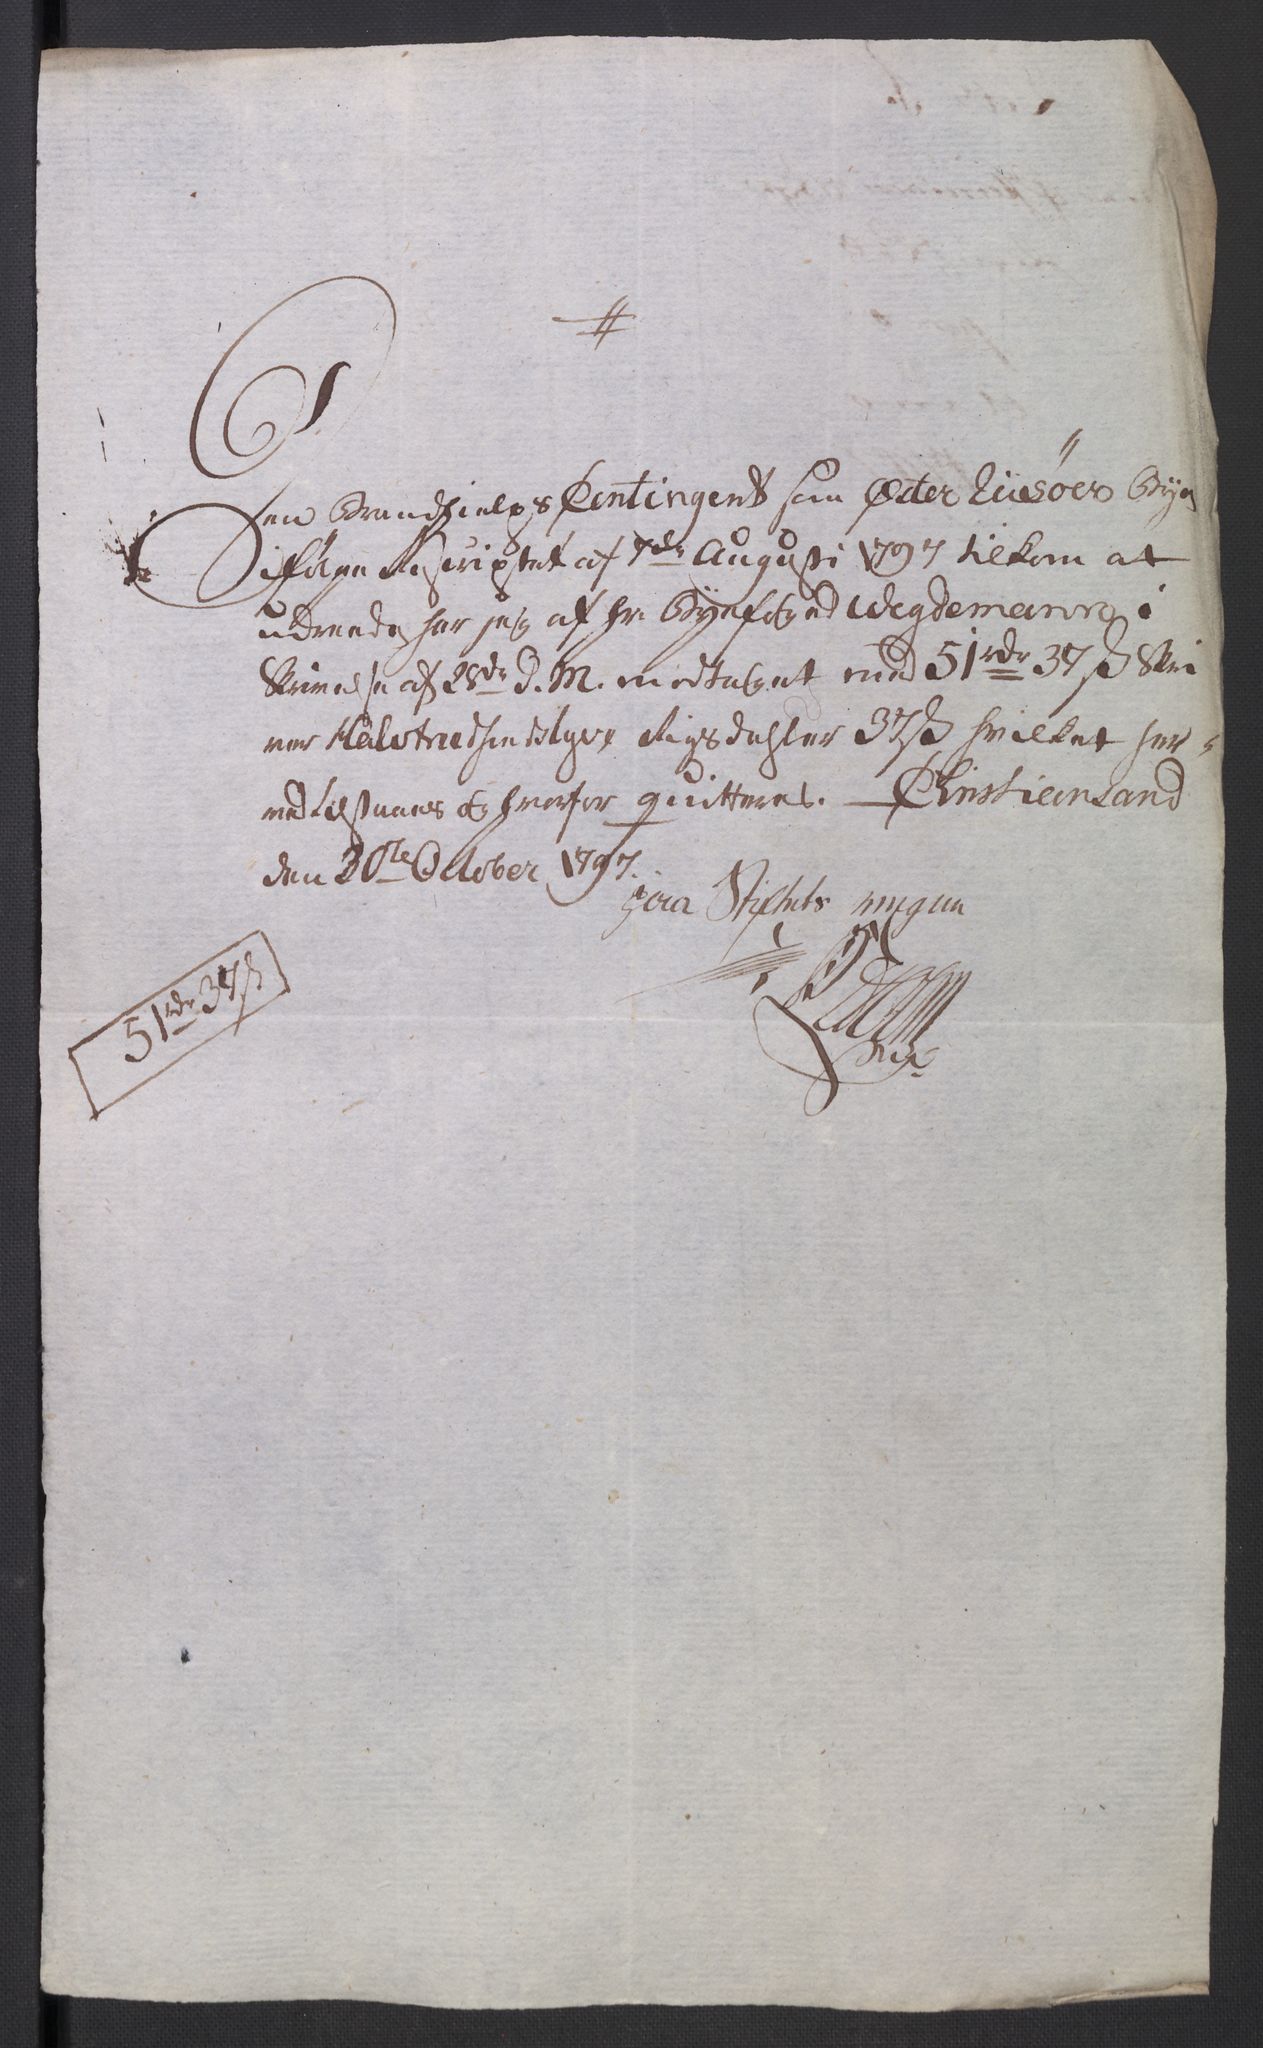 Den Brandhielps Contingent som Øster Riisöer Bÿe
ifölge Rescriptet af 7de Augusti 1797 tilkom at
udrede, har jeg af Hr. Bÿefoged Wegdemann i
Skrivelse af 28de d. M. modtaget med 51rdr 37ß Skri
ver Halvtredsindstyve Rigsdahler 37ß hvilket her-
ved tilstaaes og hvorfor quitteres. Christiansand
den 30te October 1797.
paa Stiftets vegne
51rdr 37ß